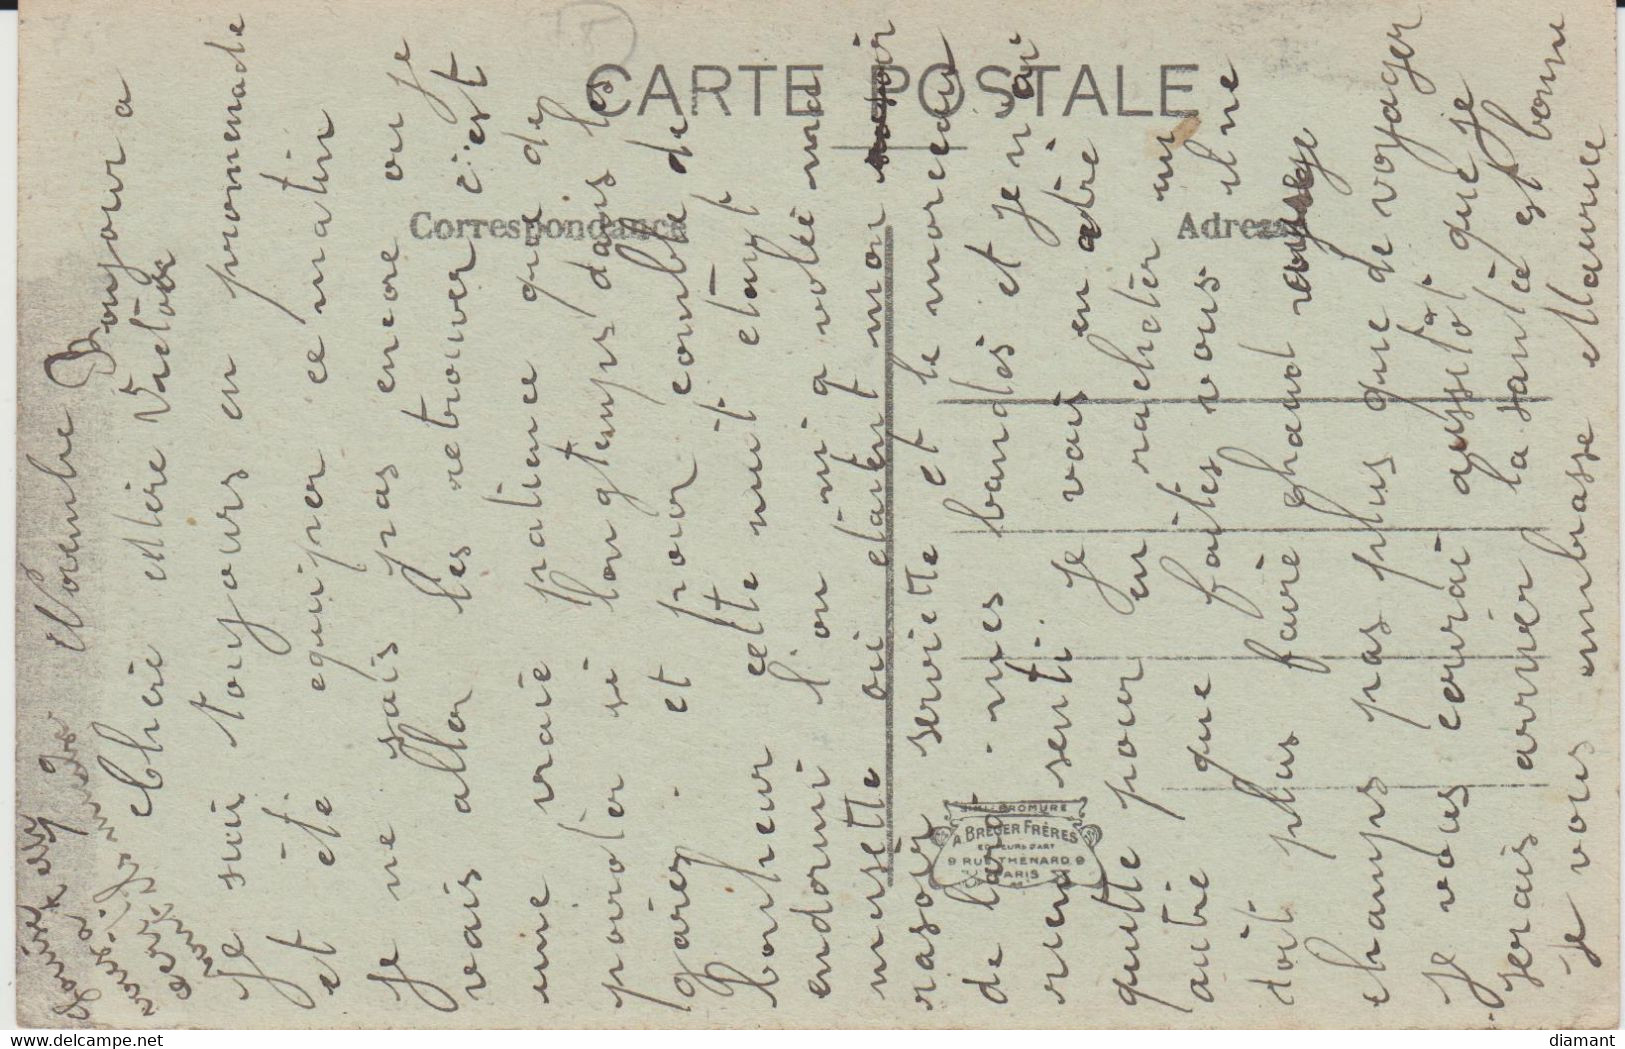 CARTE POSTALE
Correspondance
Adresse
9 Novembre
Bonjour a
Chère Mère Victor
Je sui toujours en promenade
et été equiper ce matin
je ne sais pas encore ou je
vais aller les retrouver c'est
une vraie patience que de
poiroter si longtemps dans les
gares. et pour comble de
bonheur cette nuit étant
endormi l'on m'a volé ma
musette oú étaient mon
rasoir serviette et le morceau
de lard. mes bandes et je n'ai
rien senti. Je vais en être
quitte pour en racheter un
autre que faites vous il ne
doit plus faire chaud
champs pas plus que de voyager
Je vous ecrirai aussitôt que je
serais arriver la santé est bonne
Je vous embrasse Maurice
SIMILI-BROMURE
A. BREGER FRÈRES
EDITEURS D'ART
9 RUE THÉNARD 9
PARIS
www.delcampe.net
diamant